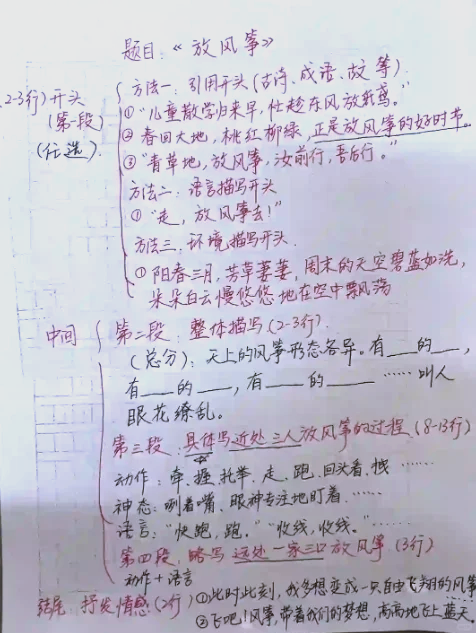 题目:《放风筝》
2-3行)开头 方法一:引用开头(古诗、成语、故 等)
(第一段) ①"儿童散学归来早,忙趁东风放纸鸢。"
(任选) ②春回大地,桃红柳绿,正是放风筝的好时节。
③"青草地,放风筝,汝前行,吾后行。"
方法二:语言描写开头
①"走,放风筝去!"
方法三:环境描写开头
①阳春三月,芳草萋萋,周末的天空碧蓝如洗,
朵朵白云慢悠悠地在空中飘荡
中间 第二段:整体描写(2-3行)
(总分):天上的风筝形态各异。有___的___,
有___的___,有___的___……叫人
眼花缭乱。
第三段:具体写近处三人放风筝的过程(8-13行)
动作:牵、握、托举、走、跑、回头看、拽……
神态:咧着嘴、眼神专注地盯着……
语言:"快跑,跑。""收线,收线。"……
第四段:略写远处一家三口放风筝(3行)
动作+语言
结尾:抒发情感(2行)①此时此刻,我多想变成一只自由飞翔的风筝
②飞吧!风筝,带着我们的梦想,高高地飞上蓝天